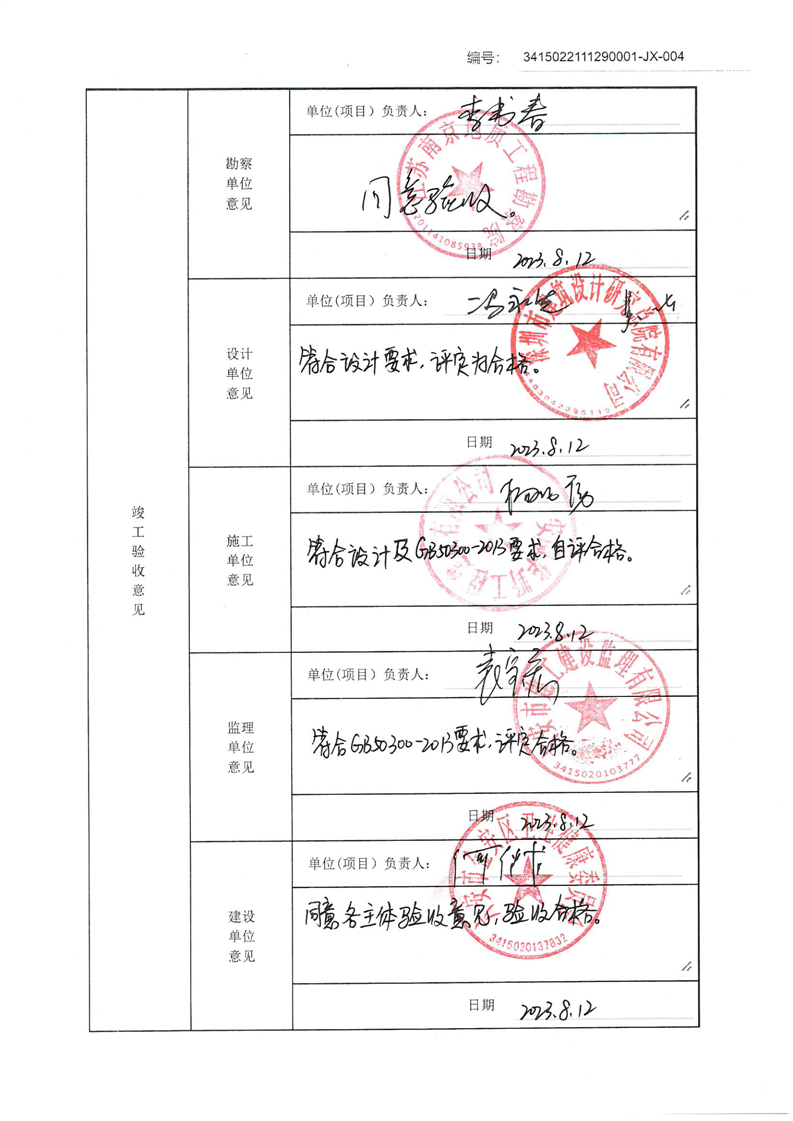 编号: 3415022111290001-JX-004
竣工验收意见
勘察单位意见
单位(项目)负责人: 李书春
同意验收。
江苏南京地质工程勘察院
日期 2023.8.12
设计单位意见
单位(项目)负责人:
符合设计要求,评定为合格。
深圳市建筑设计研究总院有限公司
日期 2023.8.12
施工单位意见
单位(项目)负责人:
符合设计及GB50300-2013要求,自评合格。
日期 2023.8.12
监理单位意见
单位(项目)负责人:
符合GB50300-2013要求,评定合格。
建设监理有限公司
3415020103777
日期 2023.8.12
建设单位意见
单位(项目)负责人:
同意各主体验收意见,验收合格。
六安市金安区卫生健康委员会
3415020137832
日期 2023.8.12